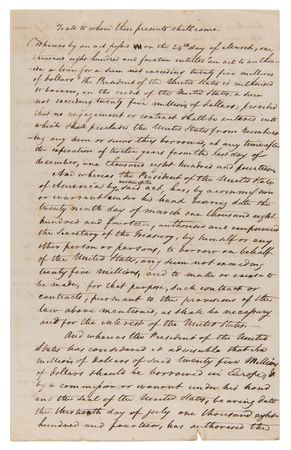 To all to whom these presents shall come.
Whereas by an act passed on the 24th day of March, one
thousand eight hundred and fourteen entitled an act to autho-
rise a loan for a sum not exceeding twenty five millions
of dollars the President of the United States is authorised
to borrow, on the credit of the United States, a sum
not exceeding twenty five millions of dollars, provided
that no engagement or contract shall be entered into
which shall preclude the United States from reimburs-
ing any sum or sums thus borrowed, at any time after
the expiration of twelve years from the last day of
december, one thousand eight hundred and fourteen
And whereas the President of the United States
of America by said act, has, by a commission
or warrant under his hand bearing date the
twenty ninth day of march one thousand eight
hundred and fourteen, authorised and empowered
the Secretary of the Treasury, by himself or any
other person or persons, to borrow on behalf
of the United States, any sum not exceeding
twenty five millions, and to make or cause to
be made, for that purpose, such contract or
contracts, pursuant to the provisions of the
law above mentioned, as shall be necessary
and for the interest of the United States.—
And whereas the President of the United
States has considered it adviseable that
millions of dollars of said twenty five Millions
of dollars should be borrowed in Europe, &
by a commission or warrant under his hand
and the seal of the United States, bearing date
the thirteenth day of july one thousand eight
hundred and fourteen, has authorised the